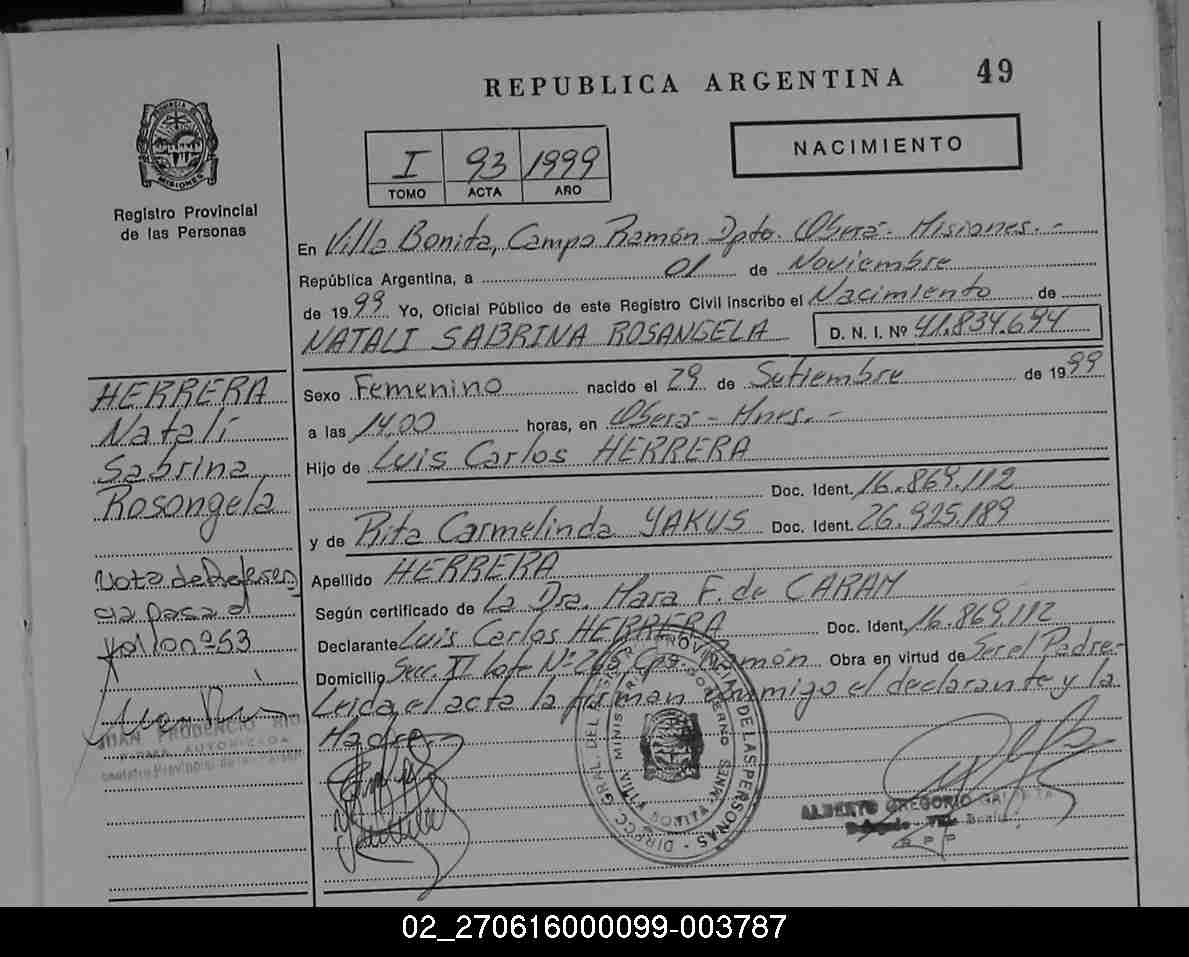 REPUBLICA ARGENTINA 49
PROVINCIA DE MISIONES
Registro Provincial
de las Personas
I 93 1999
TOMO ACTA AÑO
NACIMIENTO
En Villa Bonita, Campo Ramón Dpto. Oberá - Misiones. -
República Argentina, a 01 de Noviembre
de 1999 Yo, Oficial Público de este Registro Civil inscribo el Nacimiento de
NATALI SABRINA ROSANGELA D. N. I. Nº 41.834.694
HERRERA
Natali
Sabrina
Rosangela
Sexo Femenino nacido el 29 de Setiembre de 1999
a las 14,00 horas, en Oberá - Mnes. -
Hijo de Luis Carlos HERRERA
Doc. Ident. 16.869.112
y de Rita Carmelinda YAKUS Doc. Ident. 26.925.189
Apellido HERRERA
Según certificado de La Dra. Mara F. de CARAM
Declarante Luis Carlos HERRERA Doc. Ident. 16.869.112
Domicilio Secc. II Lote Nº Cpo. Ramón Obra en virtud de Ser el Padre-
Leida el acta la firman conmigo el declarante y la
Madre.
Nota de Referen
cia pasa al
folio nº 53
JUAN PRUDENCIO
FIRMA AUTORIZADA
Registro Provincial de las Personas
DIRECC. GRAL. DEL REGISTRO PROVINCIAL DE LAS PERSONAS
MINISTERIO DE GOBIERNO
VILLA BONITA
ALBERTO GREGORIO
Delegado - Villa Bonita
R P P
02_270616000099-003787